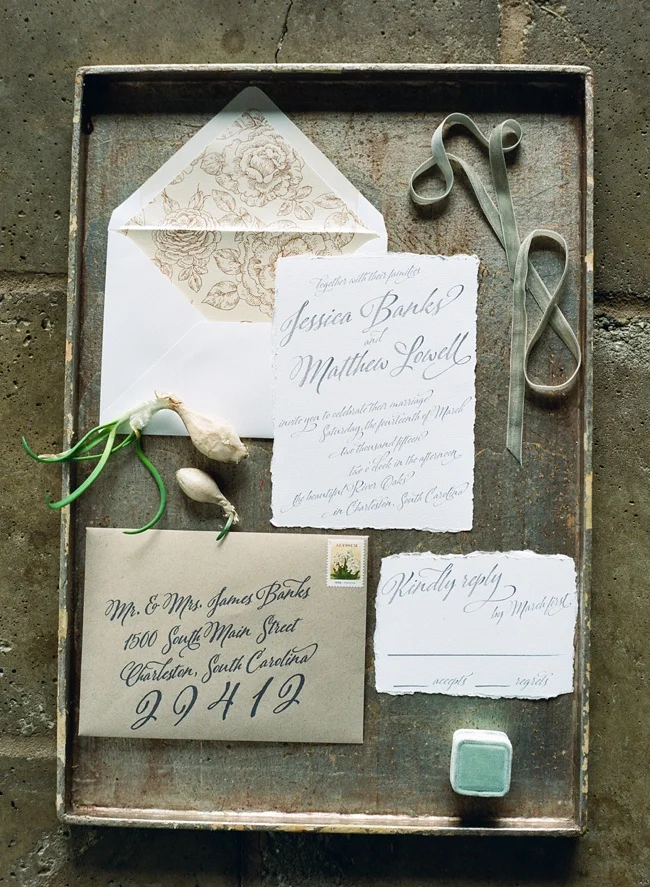 Together with their families
Jessica Banks
and
Matthew Lowell
invite you to celebrate their marriage
Saturday, the fourteenth of March
two thousand fifteen
two o'clock in the afternoon
the beautiful River Oaks
in Charleston, South Carolina
Mr. & Mrs. James Banks
1500 South Main Street
Charleston, South Carolina
29412
Kindly reply
by March first
accepts regrets